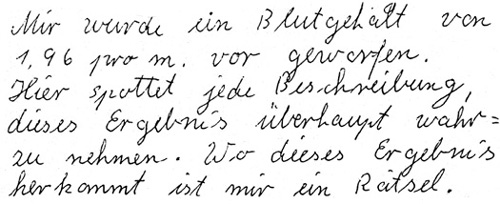 Mir wurde ein Blutgehalt von
1,96 pro m. vor geworfen.
Hier spottet jede Beschreibung,
dieses Ergebnis überhaupt wahr=
zu nehmen. Wo dieses Ergebnis
herkommt ist mir ein Rätsel.